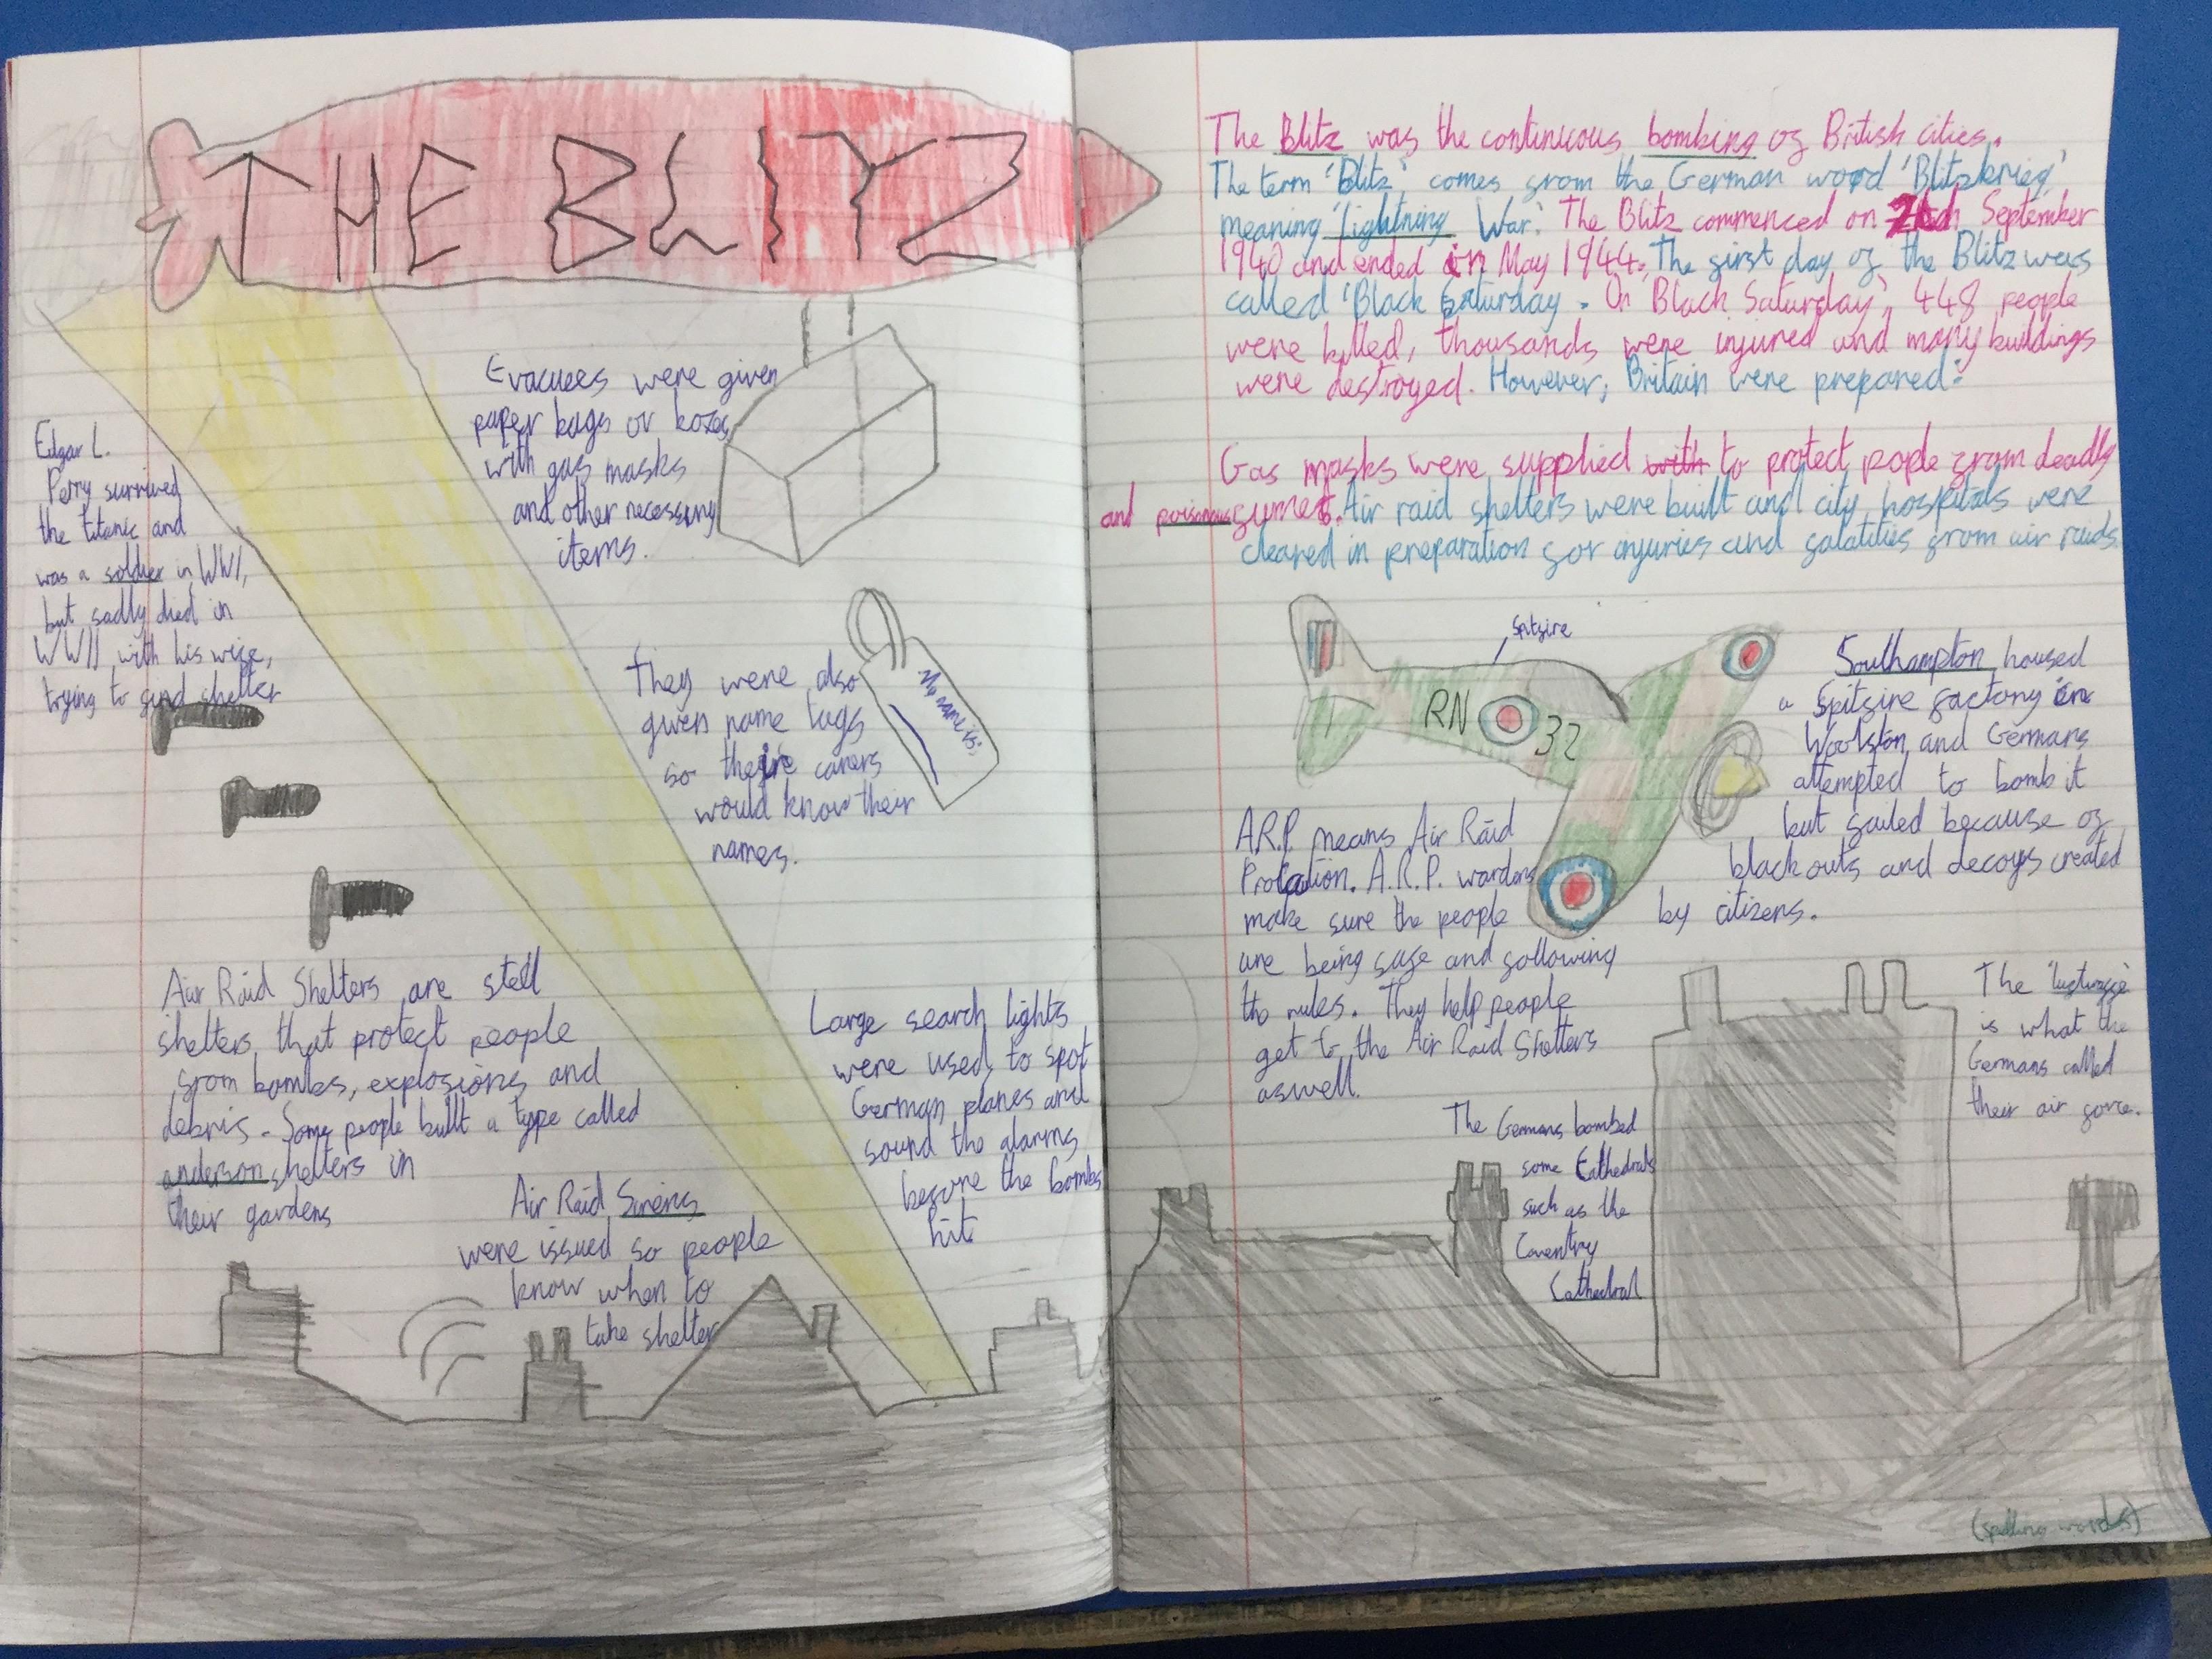 THE BLITZ
Evacuees were given
paper bags or boxes
with gas masks
and other necessary
items.
Edgar L.
Perry survived
the titanic and
was a soldier in WWI,
but sadly died in
WWII with his wife,
trying to find shelter
They were also
given name tags
so their carers
would know their
names.
My name is:
Air Raid Shelters are steel
shelters that protect people
from bombs, explosions and
debris. Some people built a type called
anderson shelters in
their gardens
Large search lights
were used to spot
German planes and
sound the alarms
before the bombs
hit
Air Raid Sirens
were issued so people
know when to
take shelter
The Blitz was the continuous bombing of British cities.
The term 'Blitz' comes from the German word 'Blitzkrieg'
meaning 'lightning War'. The Blitz commenced on September
1940 and ended in May 1944. The first day of the Blitz was
called 'Black Saturday. On 'Black Saturday', 448 people
were killed, thousands were injured and many buildings
were destroyed. However, Britain were prepared:
Gas masks were supplied with to protect pople from deadly
and poisonous fumes. Air raid shelters were built and city hospitals were
cleared in preparation for injuries and fatalities from air raids.
Spitfire
RN 32
Southampton housed
a Spitfire factory in
Woolston and Germans
attempted to bomb it
but failed because of
blackouts and decoys created
by citizens.
A.R.P. means Air Raid
A.R.P. wardens
make sure the people
are being safe and following
the rules. They help people
get to the Air Raid Shelters
aswell.
The Germans bombed
some Cathedrals
such as the
Coventry
Cathedral
The
is what the
Germans called
their air force.
(spelling words)